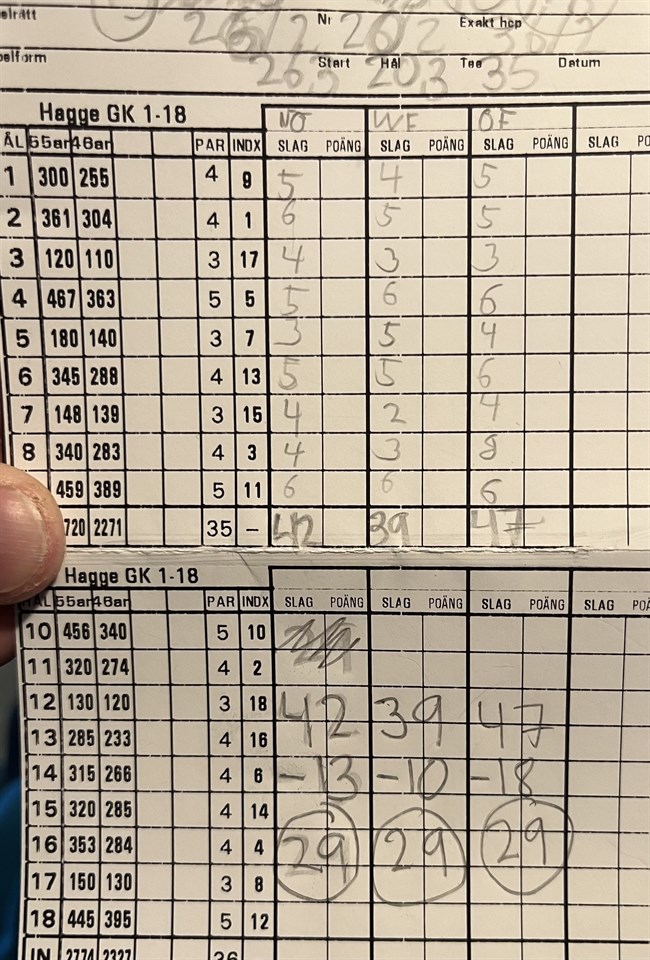 Nr Exakt hcp
26/2 26/2 36/2
Start Hål Tee Datum
26,3 20,3 35
Hagge GK 1-18 NO WF OF
55ar 46ar PAR INDX SLAG POÄNG SLAG POÄNG SLAG POÄNG SLAG
1 300 255 4 9 5 4 5
2 361 304 4 1 6 5 5
3 120 110 3 17 4 3 3
4 467 363 5 5 5 6 6
5 180 140 3 7 3 5 4
6 345 288 4 13 5 5 6
7 148 139 3 15 4 2 4
8 340 283 4 3 4 3 8
459 389 5 11 6 6 6
720 2271 35 - 42 39 47
Hagge GK 1-18
55ar 46ar PAR INDX SLAG POÄNG SLAG POÄNG SLAG POÄNG SLAG
10 456 340 5 10
11 320 274 4 2
12 130 120 3 18 42 39 47
13 285 233 4 16
14 315 266 4 6 -13 -10 -18
15 320 285 4 14
16 353 284 4 4 29 29 29
17 150 130 3 8
18 445 395 5 12
IN 2774 2327 36